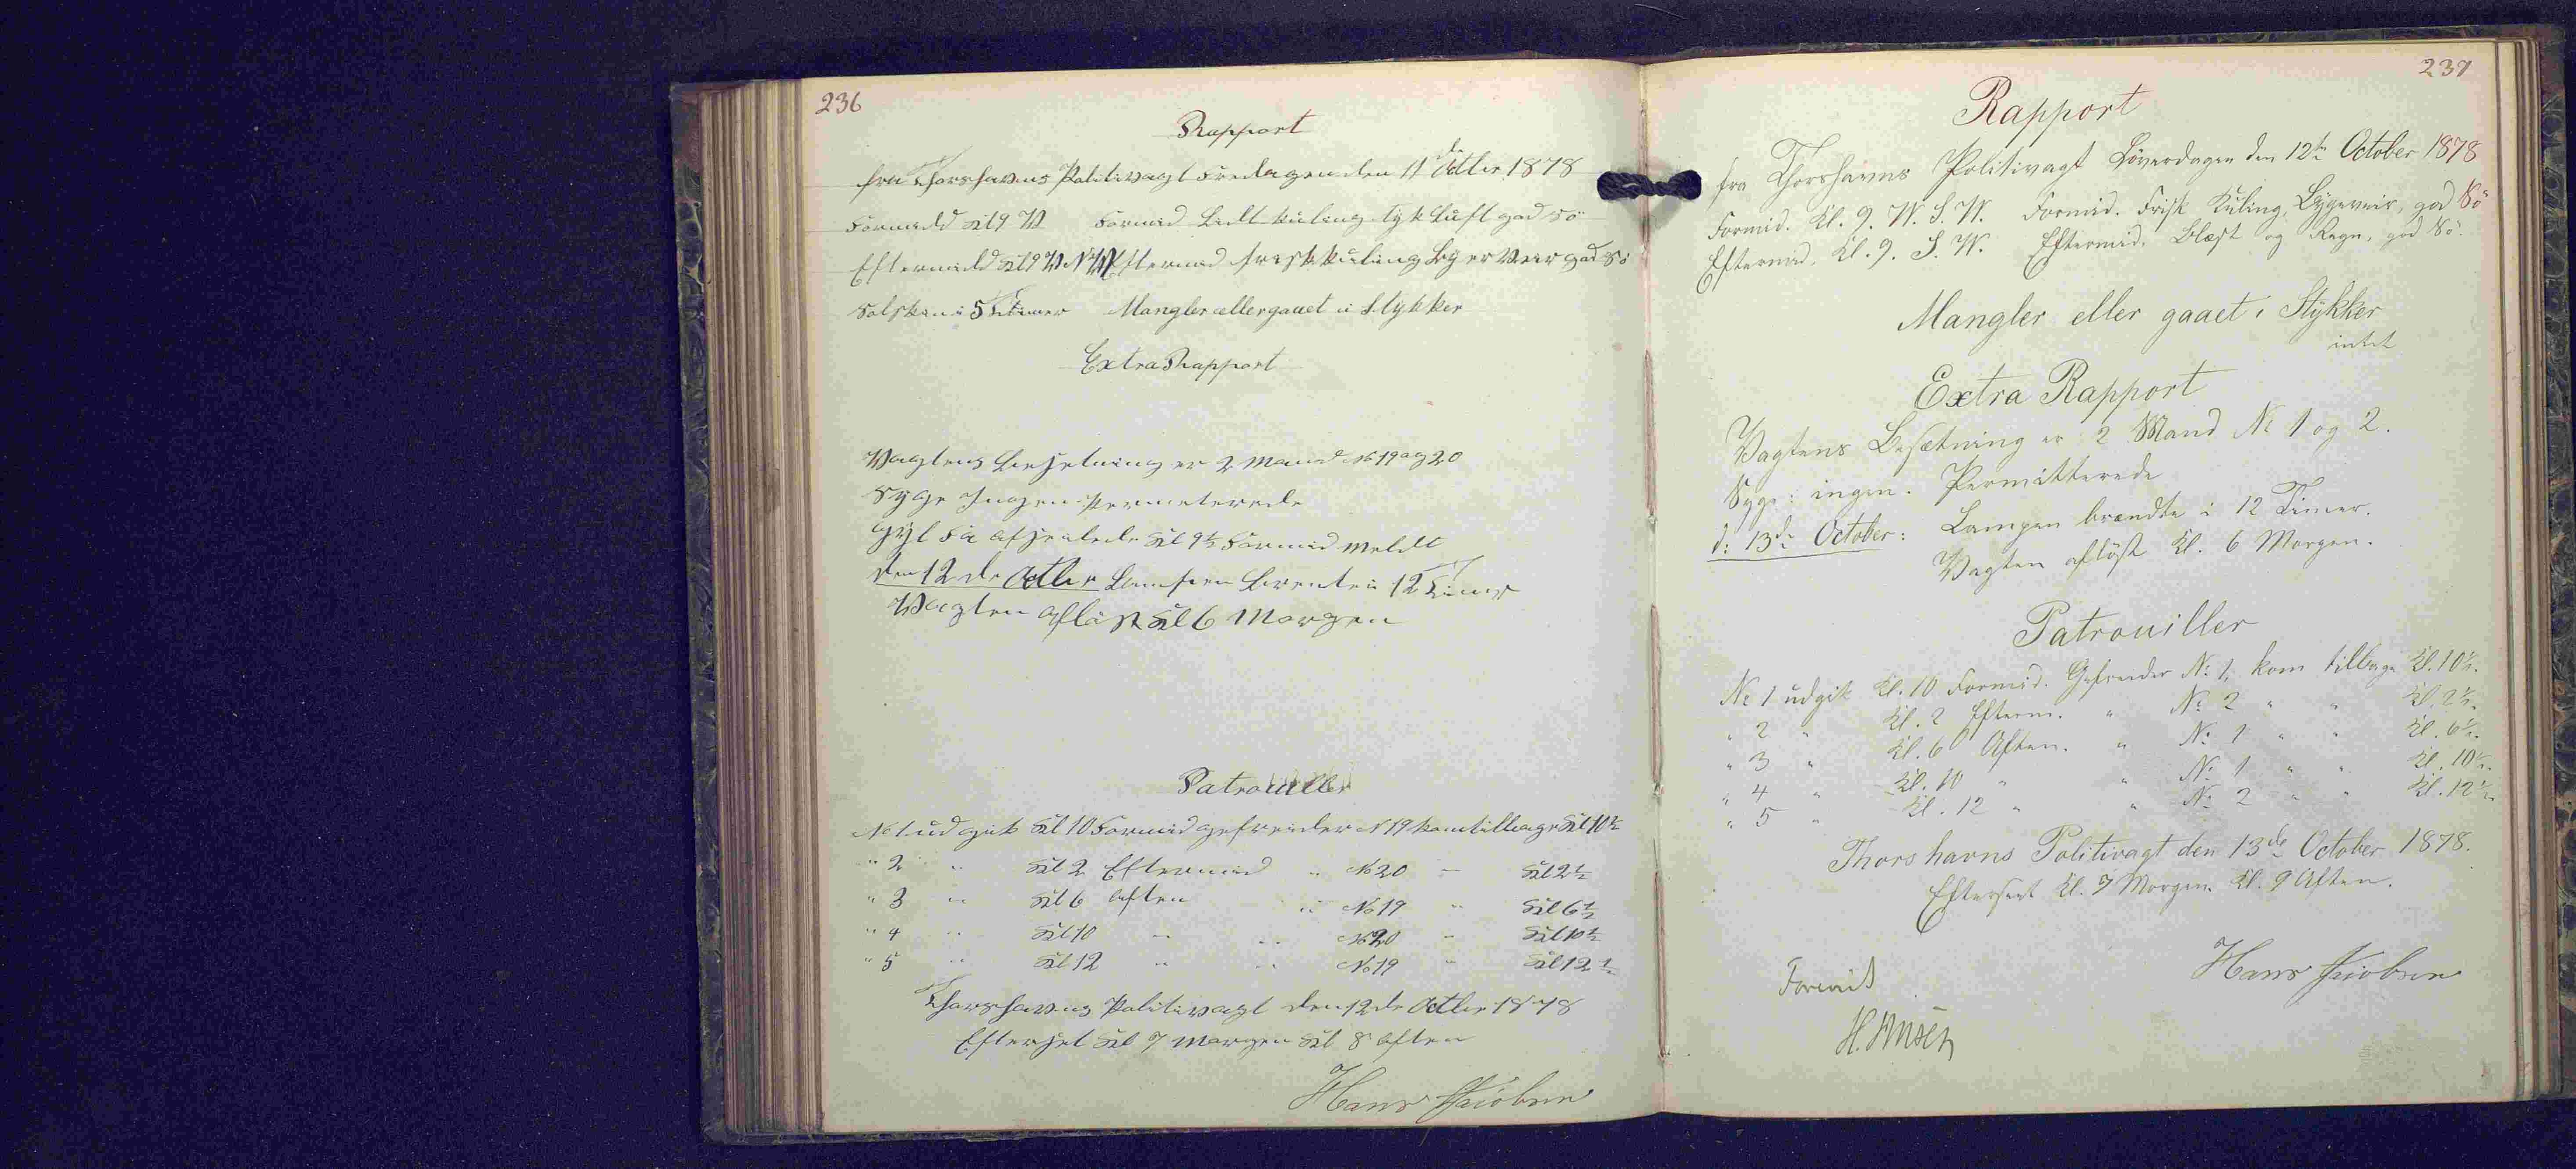 236
Rapport
fra Thorshavns Politivagt Fredagen den 11 Octbr 1878
Formidd Kl 9 W Formid Lidt kuling tyk Luft god Sö
Eftermidd Kl 9 W N W Eftermid frisk kuling Byger Veir god Sö
Solskin i 5 Timer Mangler eller gaaet i Stykker
Extra Rapport
Vagtens Besetning er 2 Mand No 19 og 20
Syge Ingen Permeterede
afsendede Kl 9½ Formid meldt
den 12 de Octbr Lampen brente i 12 Timer
Vagten aflöst Kl 6 Morgen
Patrouiller
No 1 udgik Kl 10 Formid gefreider N 19 kom tilbage Kl 10½
" 2 " Kl 2 Eftermid " No 20 - Kl 2½
" 3 " Kl 6 Aften " No 19 " Kl 6½
" 4 " Kl 10 " " No 20 - Kl 10½
" 5 " Kl 12 " " No 19 " Kl 12½
Thorshavns Politivagt den 12 de Octbr 1878
Efterset Kl 7 Morgen Kl 8 Aften
Hans Jacobsen
237
Rapport
fra Thorshavns Politivagt Löverdagen den 12te October 1878
Formid. Kl. 9. W. S. W. Formid. Frisk Kuling, Bygeveir, god Sö
Eftermid. Kl. 9. S. W. Eftermid. Blæst og Regn, god Sö.
Mangler eller gaaet i Stykker
intet
Extra Rapport
Vagtens Besætning er 2 Mand No 1 og 2.
Syge: ingen. Permitterede
d: 13de October: Lampen brændte i 12 Timer.
Vagten aflöst Kl. 6 Morgen.
Patrouiller
No 1 udgik Kl. 10 Formid. Gefreider No 1, kom tilbage Kl. 10½.
" 2 " Kl. 2 Efterm. " No 2 " " Kl. 2½.
" 3 " Kl. 6 Aften. " No 1 " " Kl. 6½.
" 4 " Kl. 10 " " No 1 " " Kl. 10½.
" 5 " Kl. 12 " " No 2 " " Kl. 12½.
Thorshavns Politivagt den 13de October 1878.
Efterseet Kl. 7 Morgen. Kl. 9 Aften.
Hans Jacobsen